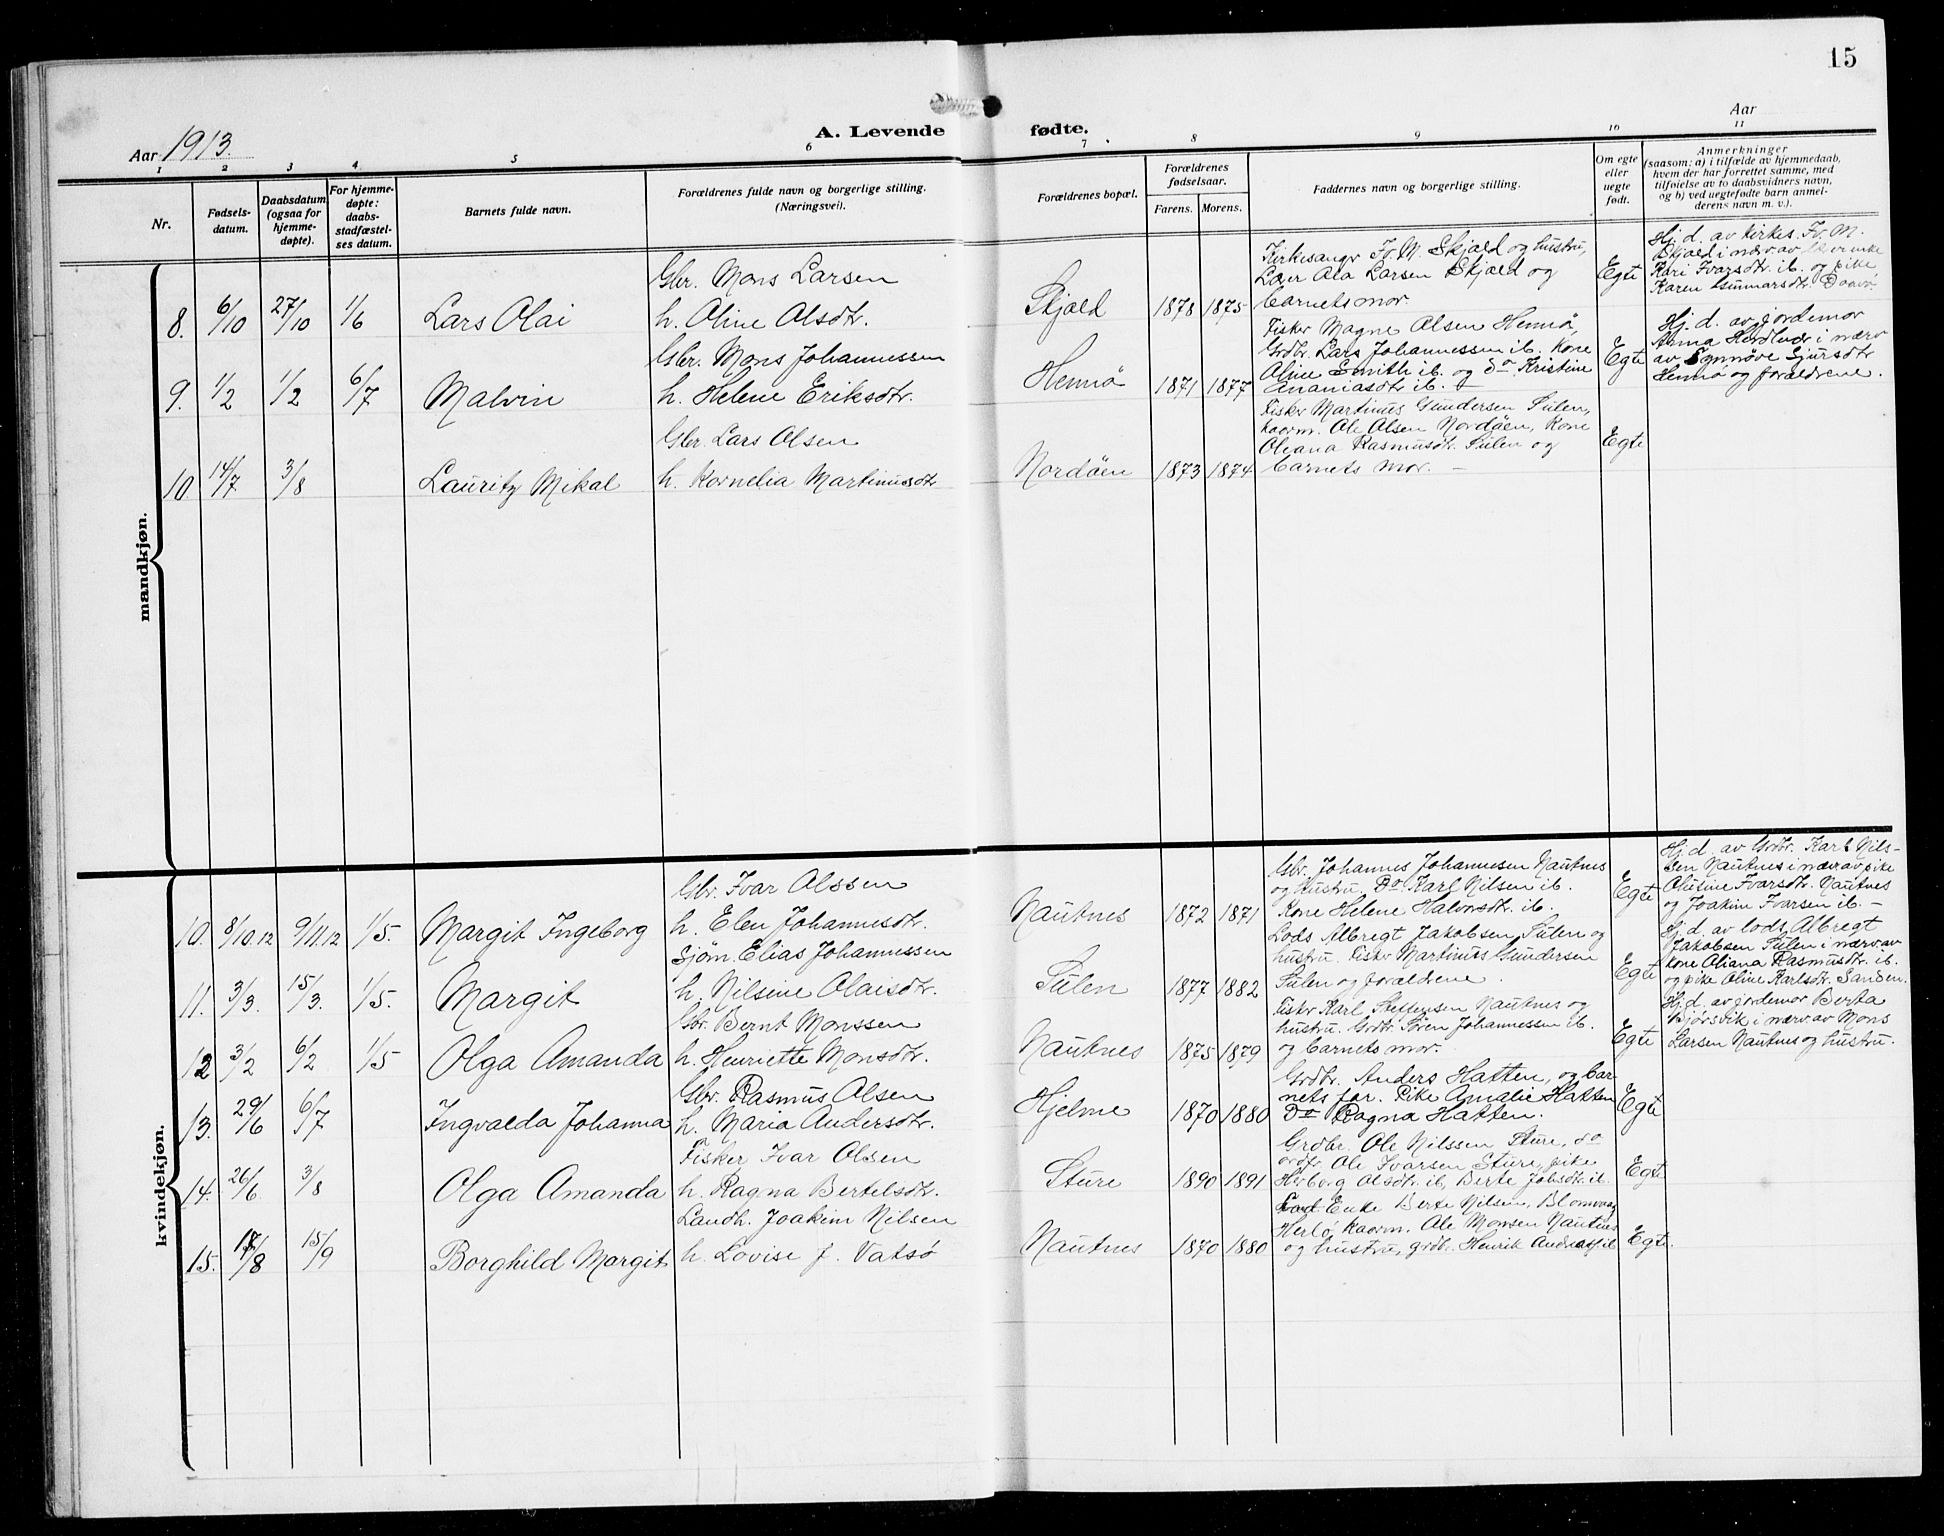 15
Aar 1913.
A. Levende fødte.
Aar
1 2 3 4 5 6 7 8 9 10 11
Nr.
Fødsels-
datum.
Daabsdatum
(ogsaa for
hjemme-
døpte).
For hjemme-
døpte:
daabs-
stadfæstel-
ses datum.
Barnets fulde navn.
Forældrenes fulde navn og borgerlige stilling.
(Næringsvei).
Forældrenes bopæl.
Forældrenes
fødselsaar.
Farens. Morens.
Faddernes navn og borgerlige stilling.
Om egte
eller
uegte
født.
Anmerkninger
(saasom: a) i tilfælde av hjemmedaab,
hvem der har forrettet samme, med
tilføielse av to daabsvidners navn,
og b) ved uegtefødte barn anmel-
derens navn m. v.).
mandkjøn.
8. 6/10 27/10 1/6 Lars Olai
Gbr. Mons Larsen
h. Oline Olsdtr.
Skjæld 1878 1875
Kirkesangr Iv. M. Skjæld og hustru,
Larsen Skjæld og
barnets mor.
Egte
Hj. d. av kirkes. Iv. M.
Skjæld i nærv. av
Kari Ivarsdtr. ib. og pike
Karen Gunnarsdt.
9. 1/2 1/2 6/7 Malvin
Gbr. Mons Johannessen
h. Helene Eriksdtr.
Hennø 1871 1877
Fisker Magne Olsen Hennø,
Grdbr. Lars Johannessen ib. Kone
Oline Smith ib. og do Kristine
Ananiasdt ib.
Egte
Hj. d. av jordemor
Anna Herdlevær i nærv
av Synnøve Sjursdtr
Hennø og forældrene.
10 14/7 3/8 Lauritz Mikal
Gbr. Lars Olsen
h. Kornelia Martinusdtr
Nordøen 1873 1874
Fisker Martinus Gundersen Sulen,
kaarm. Ole Olsen Nordøen, Kone
Oleana Rasmusdtr. Sulen og
barnets mor. –
Egte
kvindekjøn.
10. 8/10.12 9/11.12 1/5. Margit Ingeborg
Gbr. Ivar Olssen
h. Elen Johannesdtr.
Nautnes 1872 1871
Gbr. Johannes Johannesen Nautnes
og hustru. Do Karl Nilsen ib.
Kone Helene Halvorsdtr. ib.
Egte
Hj. d. av Grdbr. Karl Nils-
sen Nautnes i nærv av pike
Olusine Ivarsdtr. Nautnes
og Joakim Ivarsen ib. –
11. 3/3. 15/3. 1/5. Margit
Sjøm. Elias Johannessen
h. Nilsine Olaisdtr.
Sulen 1877 1882
Lods Albregt Jakobsen Sulen og
hustru. Fisker Martinus Gundersen
Sulen og forældrene.
Egte
Hj. d. av lods Albregt
Jakobsen Sulen i nærv. av
kone Oliana Rasmusdtr. ib.
og pike Oline Karlsdtr. Sanden.
12 3/2 6/2 1/5 Olga Amanda
Gbr. Bernt Monssen
h. Henriette Monsdtr.
Nautnes 1875 1879
Fisker Karl Steffensen Nautnes og
hustru. Grdbr. Søren Johannessen ib.
og barnets mor.
Egte
Hj. d. av jordemor Berta
Bjørsvik i nærv. av Mons
Larsen Nautnes og hustru.
13. 29/6 6/7 Ingvalda Johanna
Gbr. Rasmus Olsen
h. Maria Andersdtr.
Hjelme 1870 1880
Grdbr. Anders Hatten, og bar-
nets far. Pike Amalie Hatten
Do Ragna Hatten.
Egte
14. 26/6 3/8 Olga Amanda
Fisker Ivar Olsen
h. Ragna Bertelsdtr.
Sture 1890 1891
Grdbr. Ole Nilssen Sture, do
Ole Ivarsen Sture, pike
Herborg Olsdtr. ib, Berte Jobsdtr. ib.
Egte
15. 17/8 15/9 Borghild Margit
Landh. Joakim Nilsen
h. Lovise f. Vatsø
Nautnes 1870 1880
Enke Berte Nilsen, Blomvaag
Herlø kaarm. Ole Monsen Nautnes
og hustru, grdbr. Henrik Andreas ib
Egte.